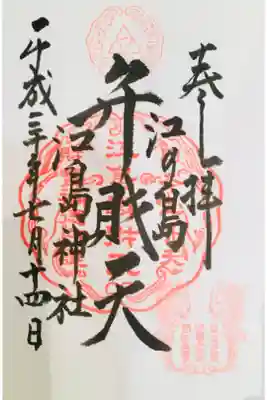 奉拝
江の島
弁財天
江島神社
平成三十年七月十四日